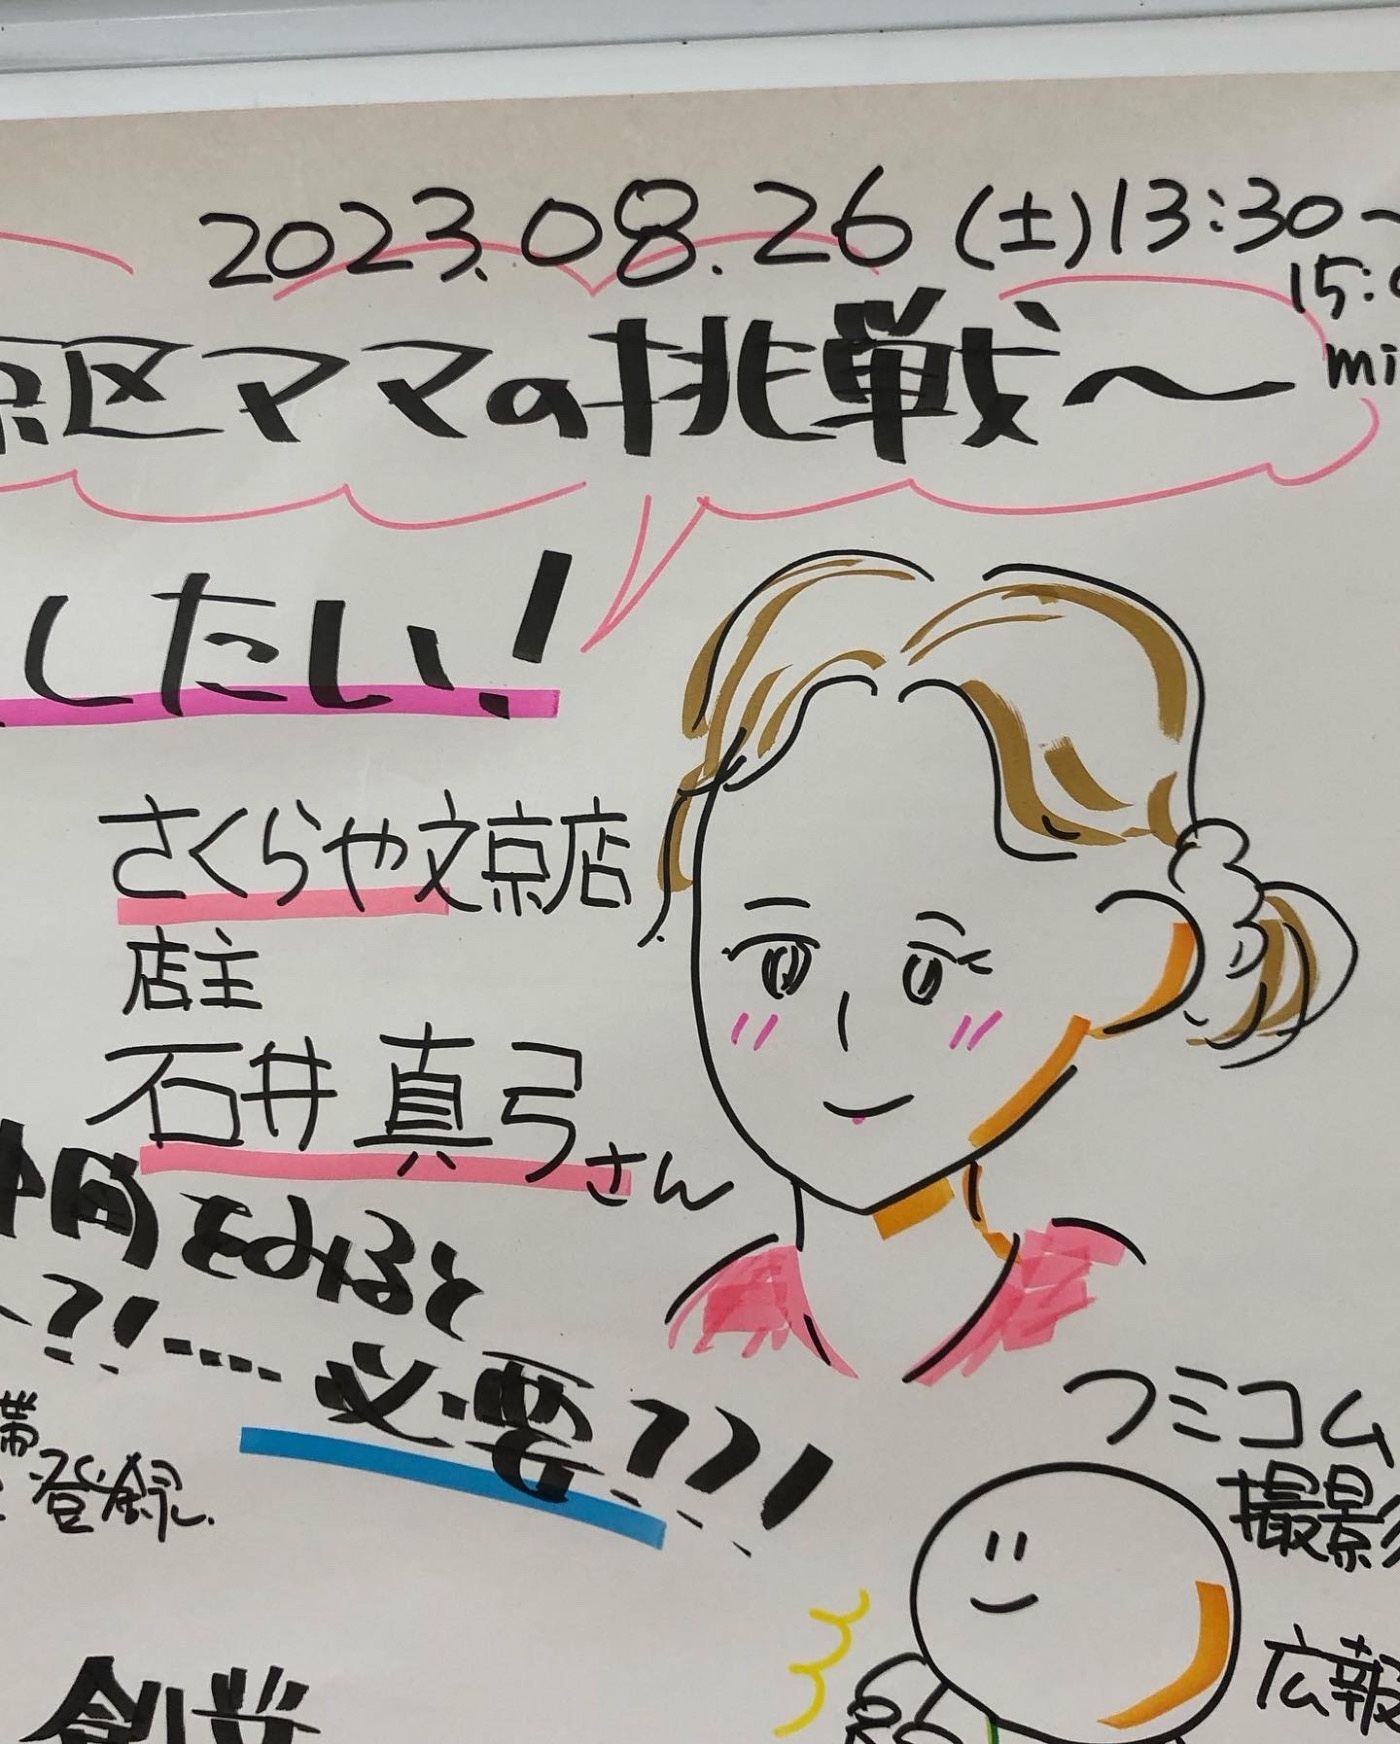 2023.08.26 (土) 13:30~
15:
mi
京区ママの挑戦〜
したい!
さくらや文京店
店主
石井 真弓さん
仲間をみると
?!……必要??!
帯
登録.
フミコム
撮影
広報
創業